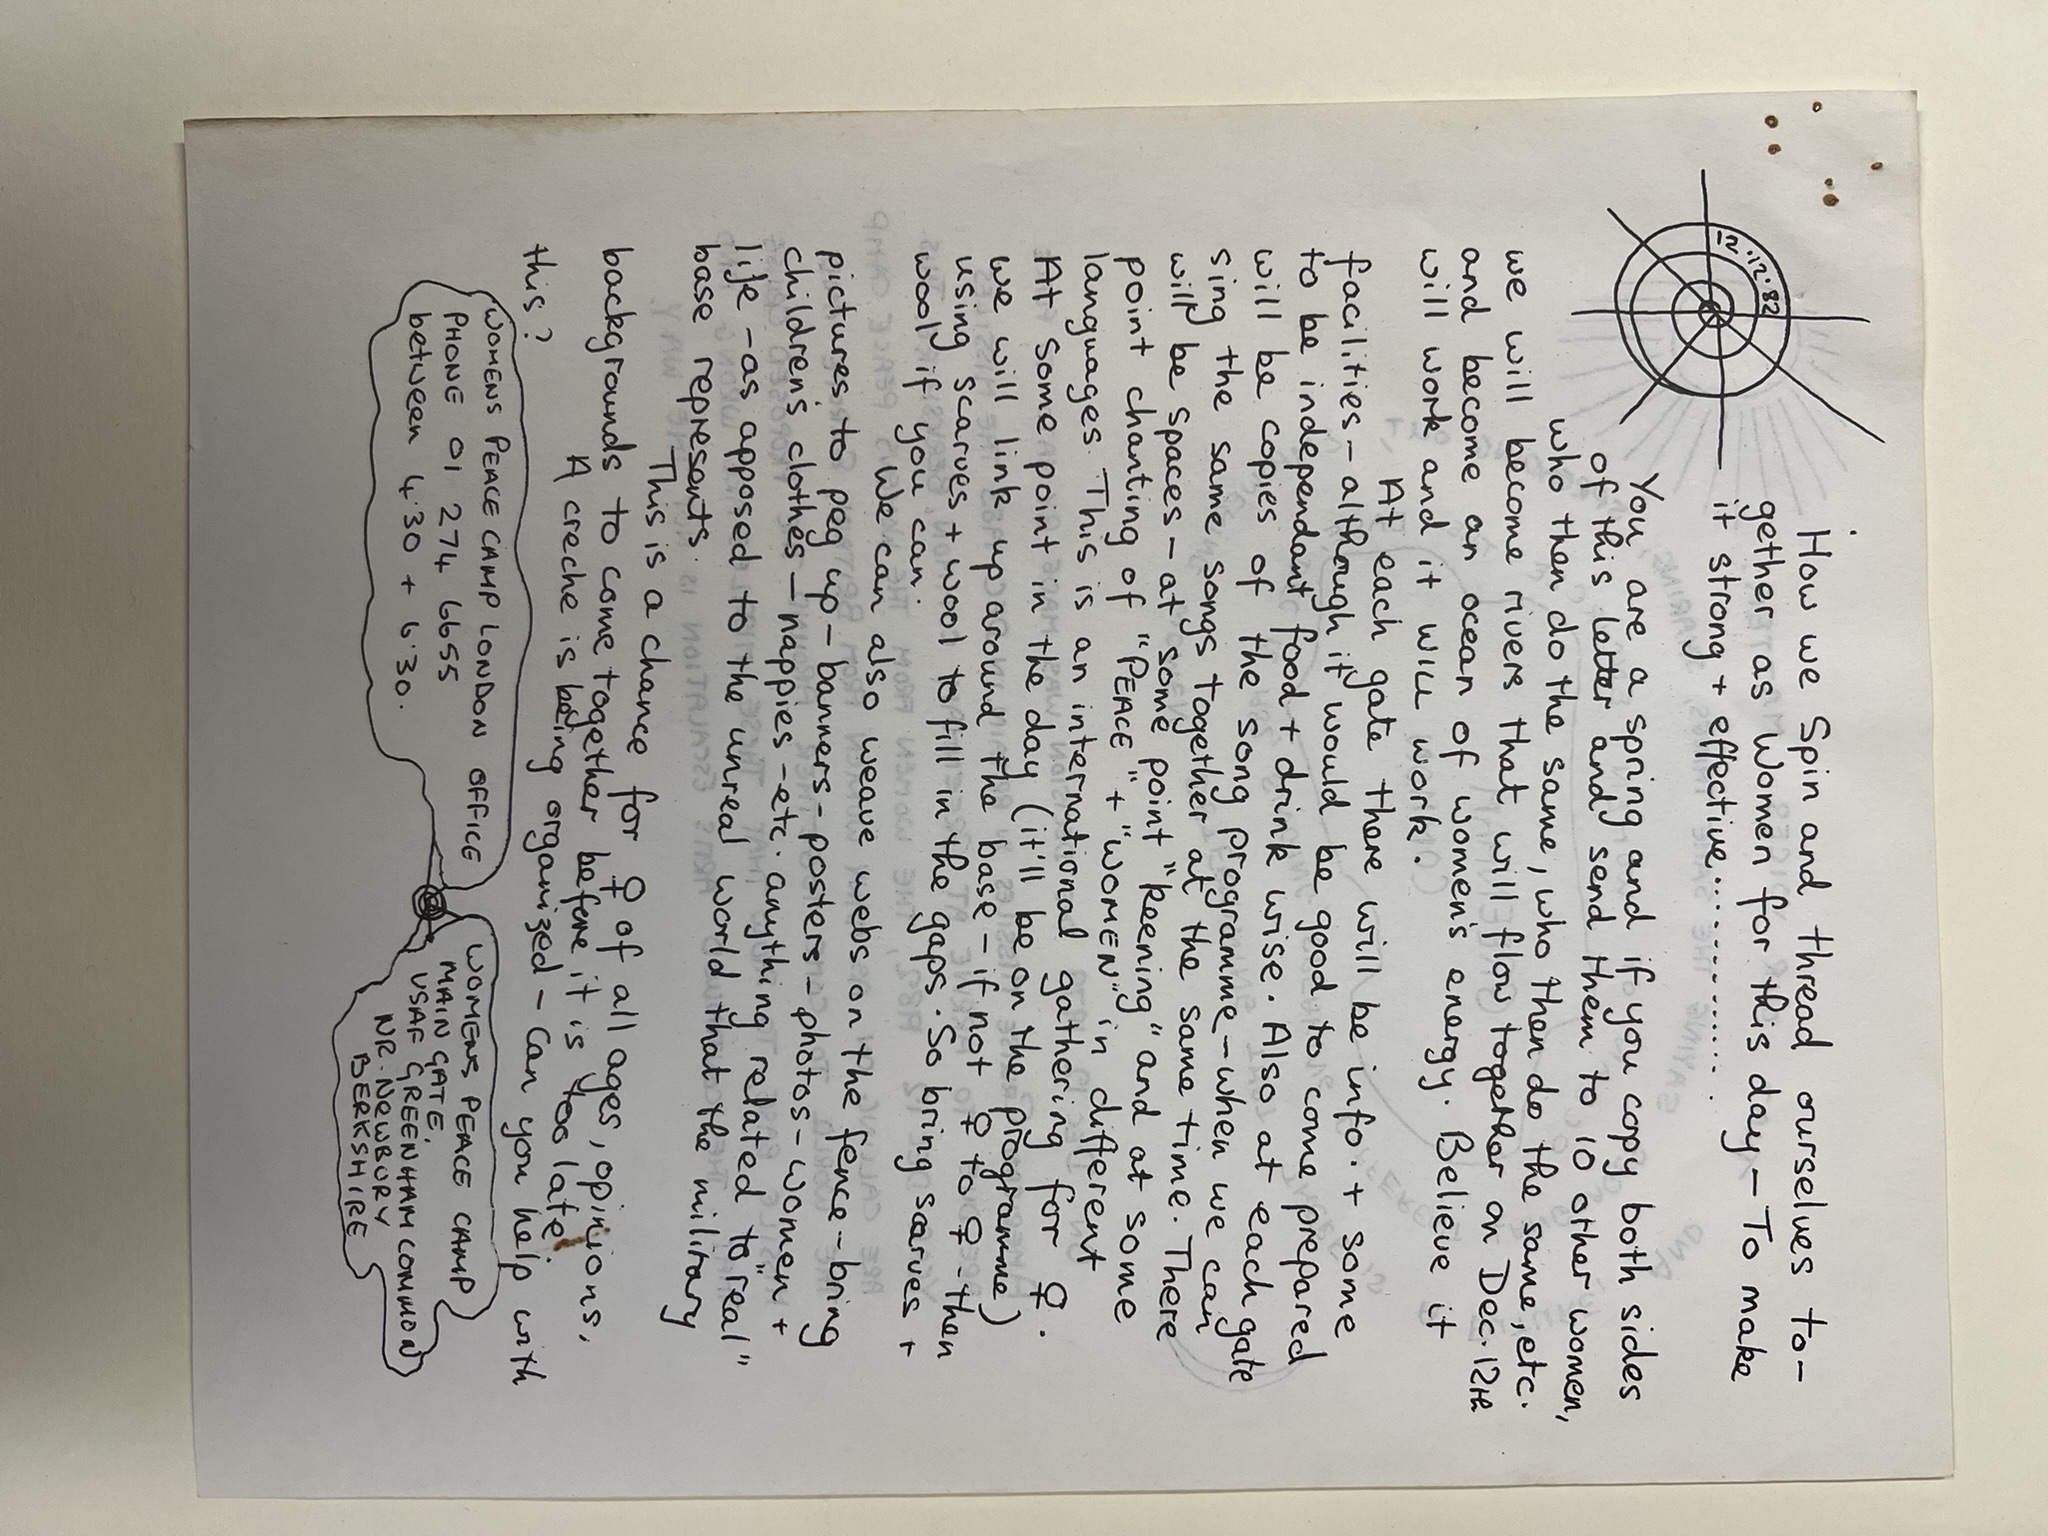 12.12.82
How we Spin and thread ourselves to-
gether as Women for this day – To make
it strong + effective..............
You are a spring and if you copy both sides
of this letter and send them to 10 other women,
who then do the same, who then do the same, etc.
we will become rivers that will flow together on Dec. 12th
and become an ocean of women's energy. Believe it
will work and it WILL work.
At each gate there will be info. + some
facilities – although it would be good to come prepared
to be independant food + drink wise. Also at each gate
will be copies of the song programme – when we can
sing the same songs together at the same time. There
will be spaces – at some point "keening" and at some
point chanting of "PEACE" + "WOMEN" in different
languages. This is an international gathering for ♀.
At some point in the day (it'll be on the programme)
we will link up around the base – if not ♀ to ♀ - then
using scarves + wool to fill in the gaps. So bring scarves +
wool if you can.
We can also weave webs on the fence – bring
pictures to peg up – banners – posters – photos – women +
children's clothes – nappies – etc. anything related to "real"
life – as apposed to the unreal world that the military
base represents.
This is a chance for ♀ of all ages, opinions,
backgrounds to come together before it is too late.
A creche is being organized – Can you help with
this?
WOMENS PEACE CAMP LONDON OFFICE
PHONE 01 274 6655
between 4.30 + 6.30.
WOMENS PEACE CAMP
MAIN GATE.
USAF GREENHAM COMMON
NR. NEWBURY
BERKSHIRE